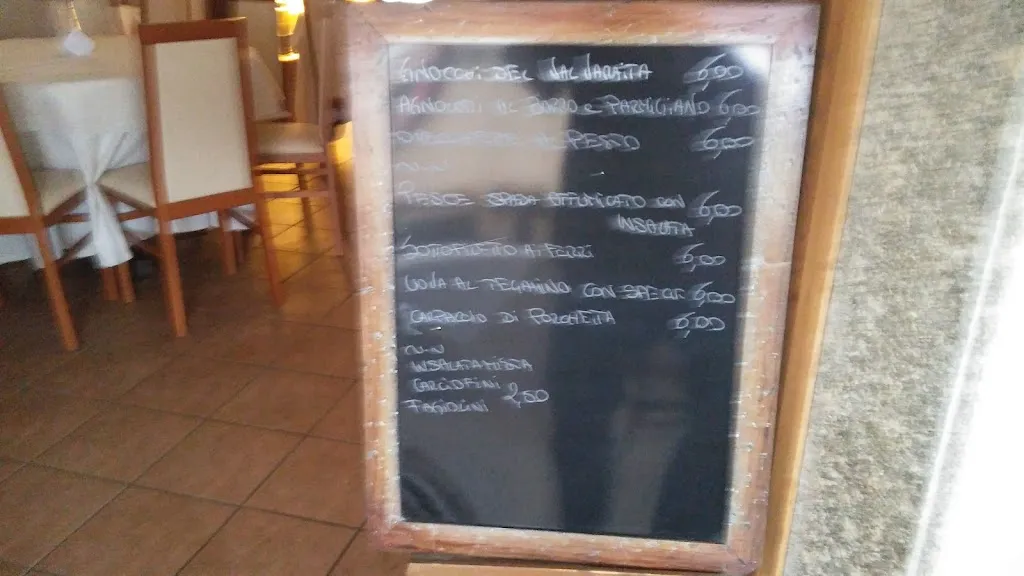 GNOCCHI DEL VAL VARAITA 6,00
AGNOLOTTI AL BURRO e PARMIGIANO 6,00
AL PESTO 6,00
PESCE SPADA AFFUMICATO CON 6,00
INSALATA
SOTTOFILETTO AI FERRI 6,00
UOVA AL TEGAMINO CON SPECK 6,00
CARPACCIO DI PORCHETTA 6,00
INSALATA MISTA
CARCIOFINI 2,50
FAGIOLINI